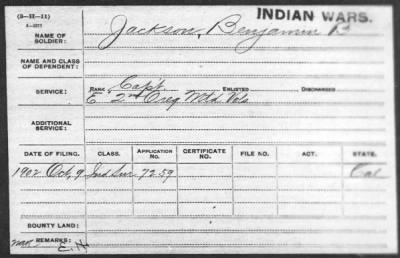 (3-II-11)
INDIAN WARS.
NAME OF SOLDIER: Jackson, Benjamin B
NAME AND CLASS OF DEPENDENT:
SERVICE: RANK Capt ENLISTED DISCHARGED
E 2nd Oreg Mtd Vols
ADDITIONAL SERVICE:
DATE OF FILING. CLASS. APPLICATION No. CERTIFICATE No. FILE NO. ACT. STATE.
1902 Oct, 9 Ind Sur 7259 Cal
BOUNTY LAND:
REMARKS: E.H